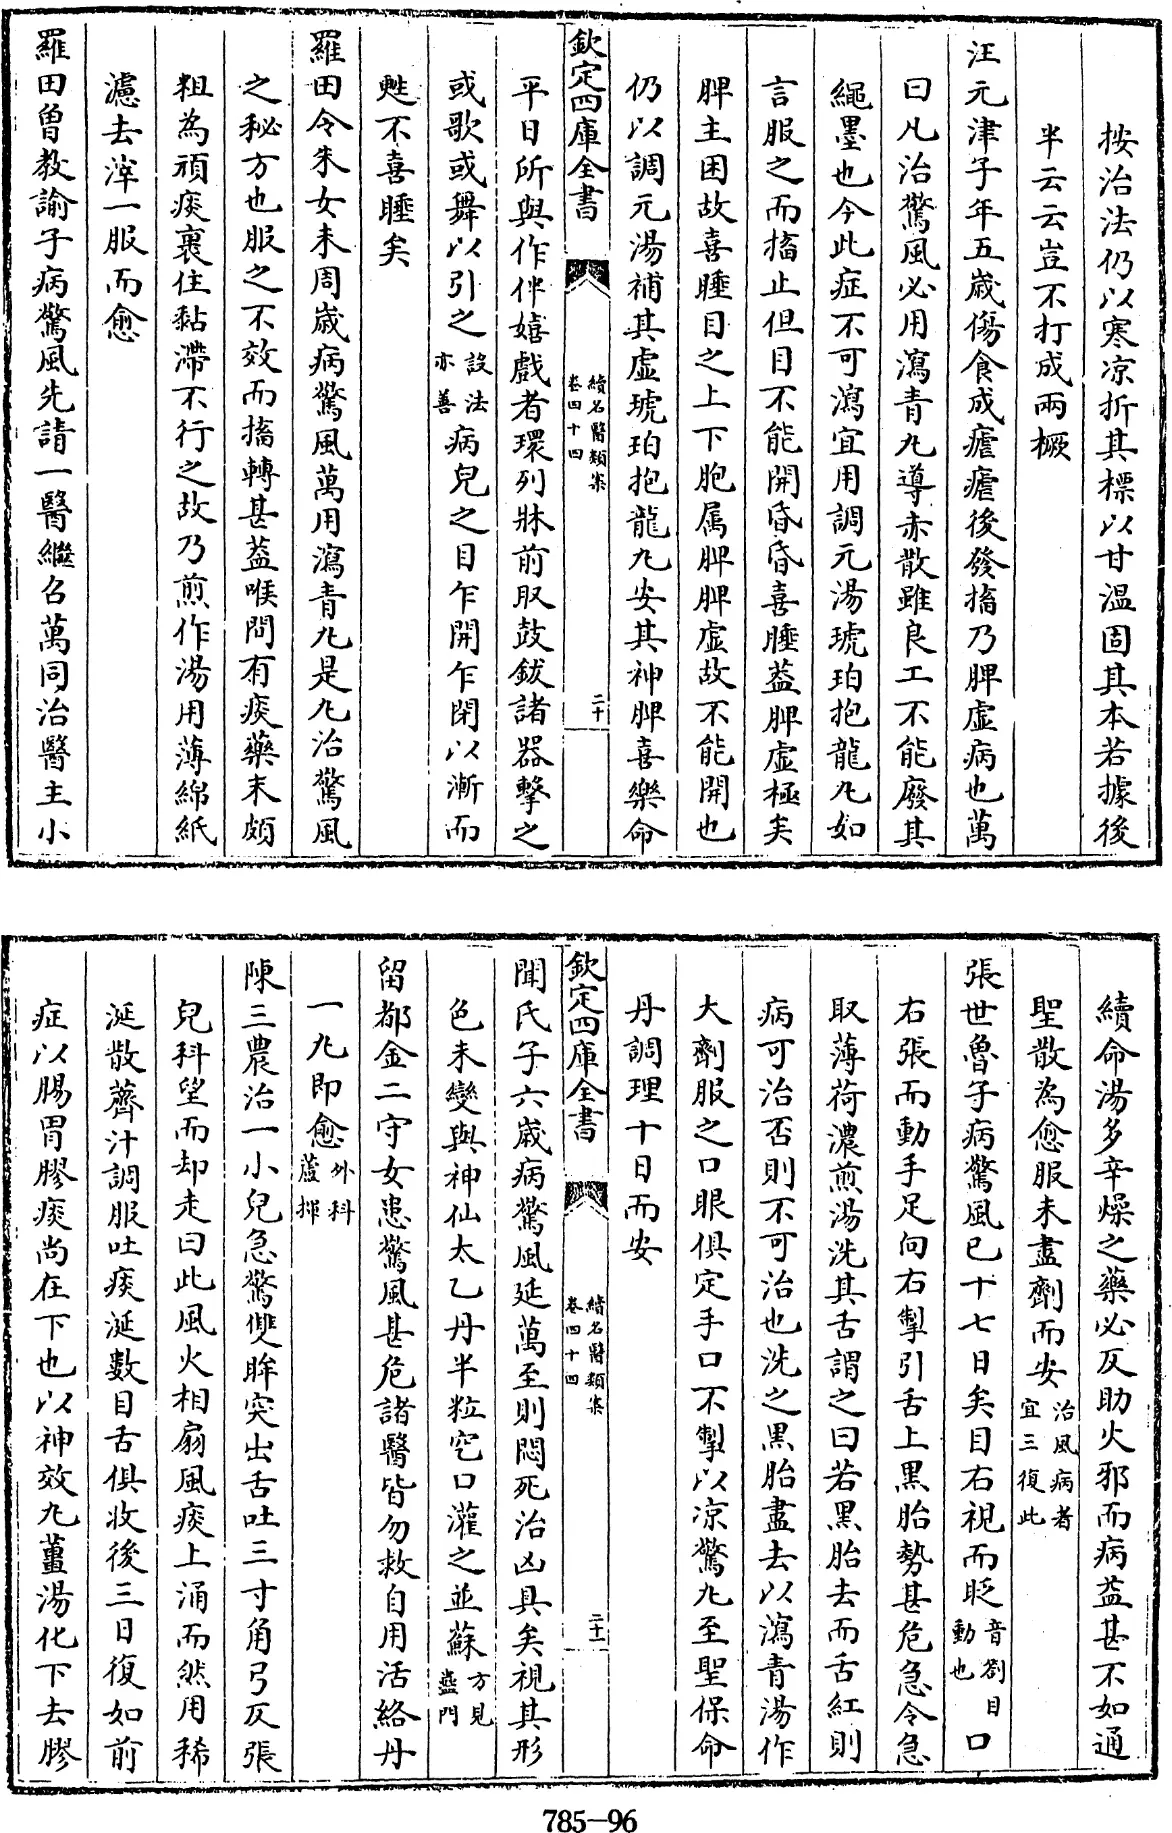 按治法仍以寒凉折其標以甘溫固其本若據後
半云云豈不打成兩橛
汪元津子年五歲傷食成瘧瘧後發搐乃脾虛病也萬
曰凡治驚風必用瀉青丸導赤散雖良工不能廢其
繩墨也今此症不可瀉宜用調元湯琥珀抱龍丸如
言服之而搐止但目不能開昏昏喜睡蓋脾虛極矣
脾主困故喜睡目之上下胞属脾脾虛故不能開也
仍以調元湯補其虛琥珀抱龍丸安其神脾喜樂命
欽定四庫全書
續名醫類案
卷四十四
二十
平日所與作伴嬉戲者環列牀前取鼓鈸諸器擊之
或歌或舞以引之設法亦善病兒之目乍開乍閉以漸而
甦不喜睡矣
羅田令朱女未周歲病驚風萬用瀉青丸是丸治驚風
之秘方也服之不效而搐轉甚蓋喉間有痰藥末頗
粗為頑痰裹住黏滯不行之故乃煎作湯用薄綿紙
濾去滓一服而愈
羅田曾教諭子病驚風先請一醫繼召萬同治醫主小
續命湯多辛燥之藥必反助火邪而病益甚不如通
聖散為愈服未盡劑而安治風病者宜三復此
張世魯子病驚風已十七日矣目右視而眨音劄目動也口
右張而動手足向右掣引舌上黑胎勢甚危急令急
取薄荷濃煎湯洗其舌謂之曰若黑胎去而舌紅則
病可治否則不可治也洗之黑胎盡去以瀉青湯作
大劑服之口眼俱定手口不掣以凉驚丸至聖保命
丹調理十日而安
欽定四庫全書
續名醫類案
卷四十四
二十一
聞氏子六歲病驚風延萬至則悶死治凶具矣視其形
色未變與神仙太乙丹半粒空口灌之並蘇方見蠱門
留都金二守女患驚風甚危諸醫皆勿救自用活絡丹
一丸即愈外科蘆揮
陳三農治一小兒急驚雙眸突出舌吐三寸角弓反張
兒科望而却走曰此風火相扇風痰上涌而然用稀
涎散薺汁調服吐痰涎數目舌俱收後三日復如前
症以腸胃膠痰尚在下也以神效丸薑湯化下去膠
785-96